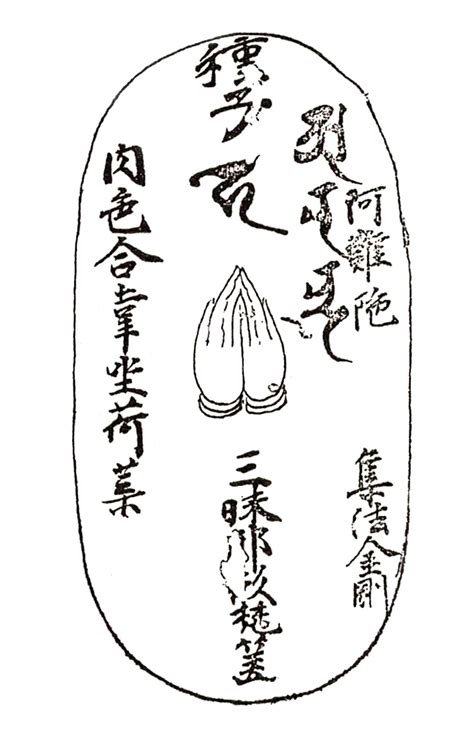 阿難陁
集法金剛
種子
三昧耶
梵篋
肉色合掌坐荷葉